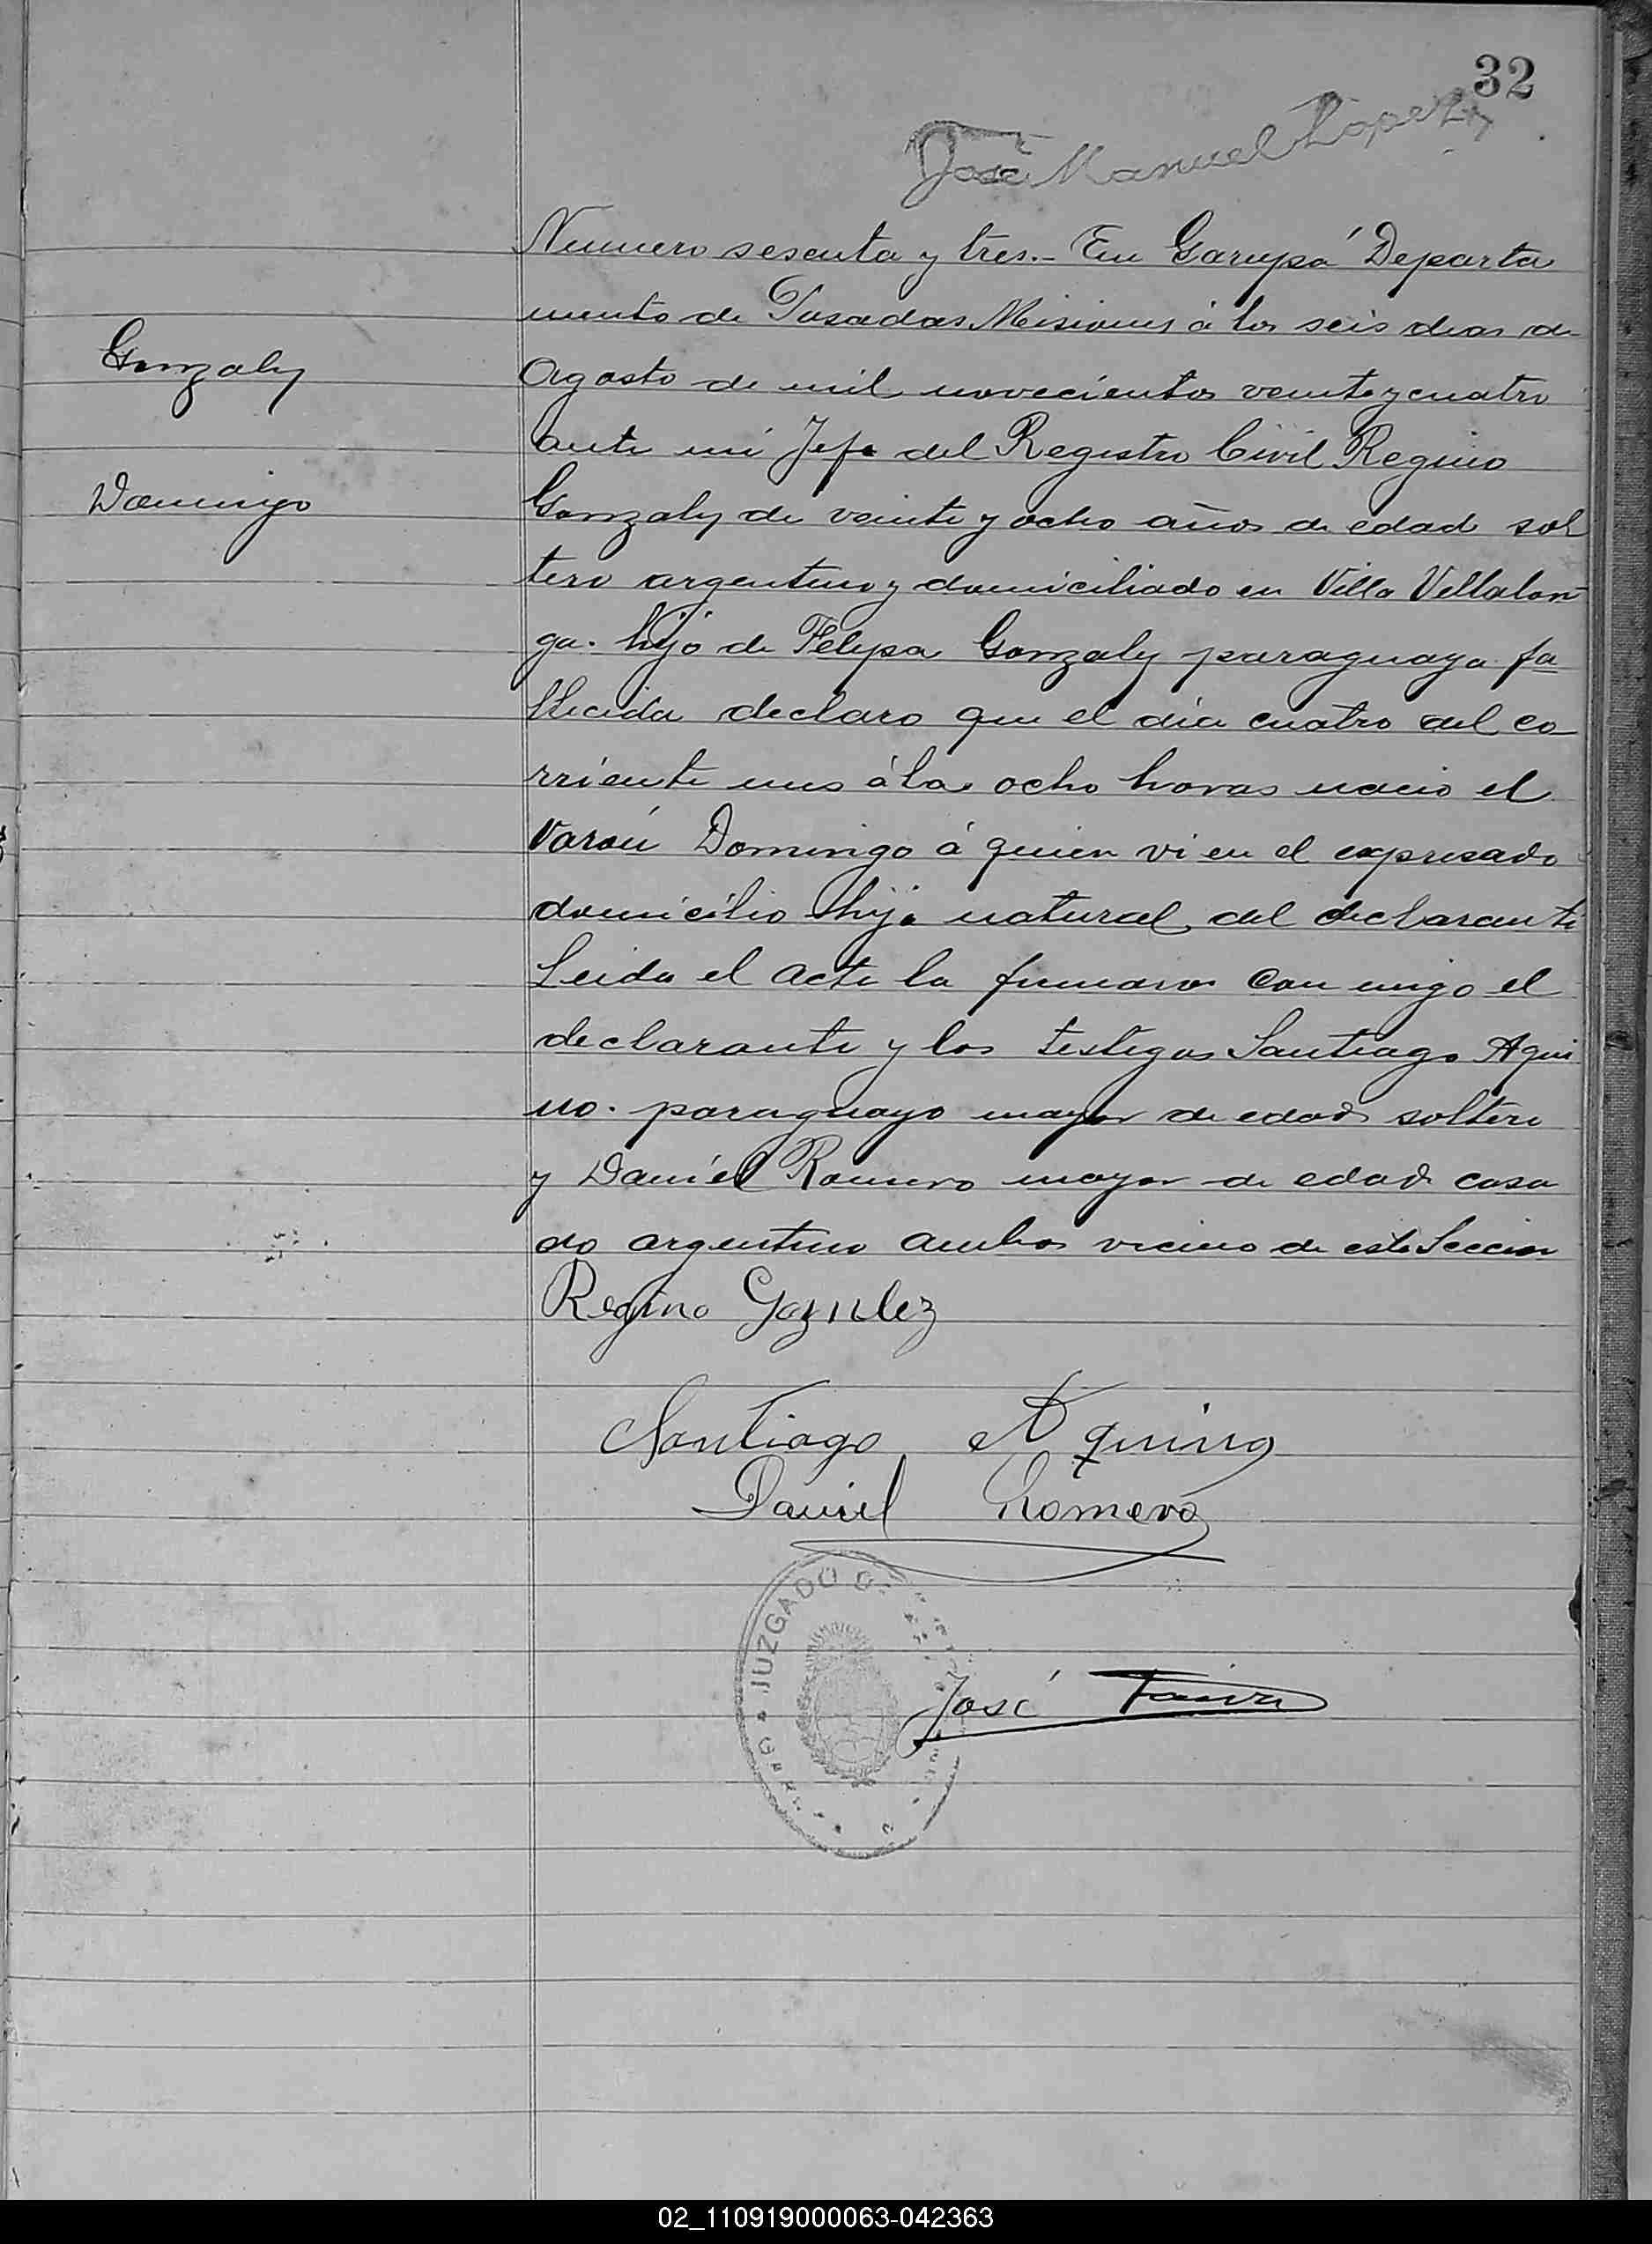 32
José Manuel Lopez
Numero sesenta y tres.- En Garupá Departa
mento de Posadas Misiones á los seis dias de
Gonzalez
Agosto de mil novecientos veinte y cuatro
ante mi Jefe del Registro Civil Regino
Domingo
Gonzalez de veinte y ocho años de edad sol
tero argentino y domiciliado en Villa Villalon
ga. hijo de Felipa Gonzalez paraguaya fa
llecida declaro que el dia cuatro del co
rriente mes á las ocho horas nacio el
Varón Domingo á quien vi en el expresado
domicilio hijo natural del declarante
Leida el acta la firmaron con migo el
declarante y los testigos Santiago Aqui
no. paraguayo mayor de edad soltero
y Daniel Romero mayor de edad casa
do argentino ambos vecino de esta Seccion
Regino Goznlez
Santiago Aquino
Daniel Romero
JUZGADO D
José
02_110919000063-042363